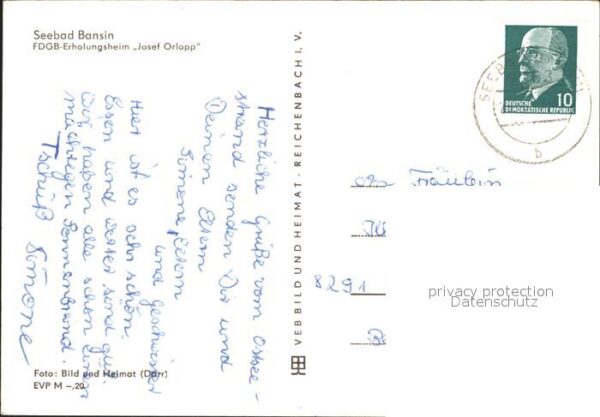 Seebad Bansin
FDGB-Erholungsheim „Josef Orlopp"
Herzliche Grüße vom Ostsee-
strand senden Dir und
Deinen Eltern
Simone, Eltern
und Geschwister
Hier ist es sehr schön.
Essen und Wetter sind gut.
Wir haben alle schon einen
mächtigen Sonnenbrand.
Tschüß Simone
Foto: Bild und Heimat (Darr)
EVP M –,20
VEB BILD UND HEIMAT · REICHENBACH I. V.
DEUTSCHE
DEMOKRATISCHE REPUBLIK
10
SEEB
b
an Fräulein
8291
privacy protection
Datenschutz